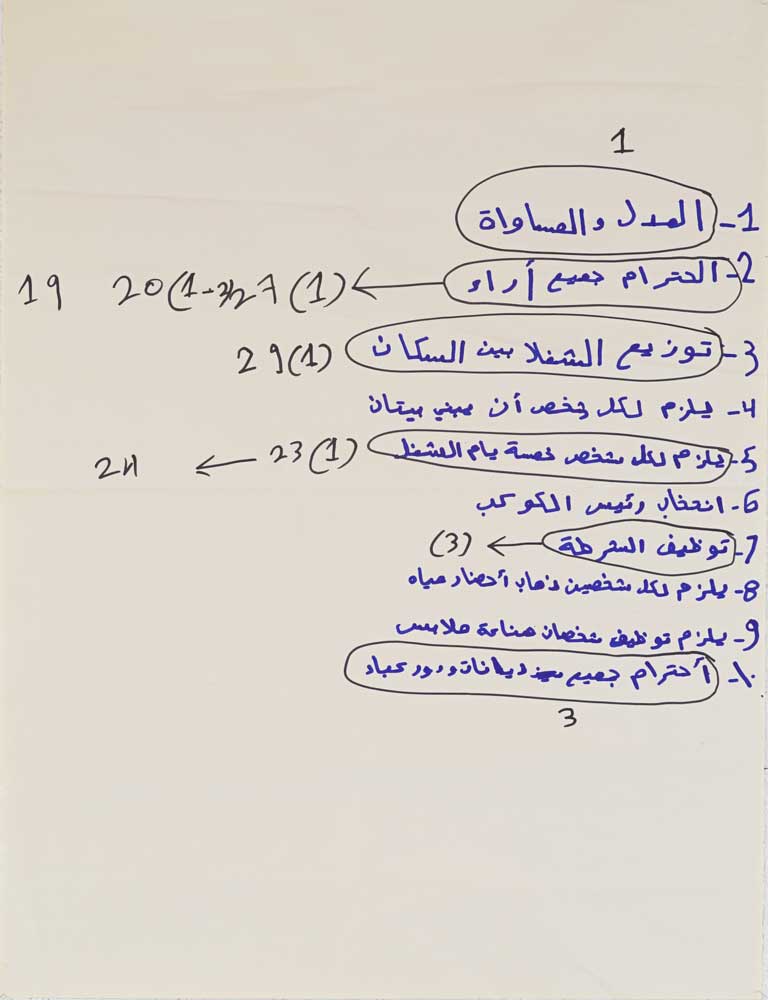 1
1- العدل والمساواة
2- الحترام جميع أراء ← 27(1) 20(1-3) 19
3- توزيع الشغل بين السكان 29(1)
4- يلزم لكل شخص أن يبني بيتان
5- يلزم لكل شخص خمسة يام الشغل 23(1) ← 24
6- انتخاب رئيس الكوكب
7- توظيف الشرطة ← (3)
8- يلزم لكل شخصين ذهاب أحضار مياه
9- يلزم توظيف شخصان صناعة ملابس
10- أحترام جميع ديانات ودور عباد
3